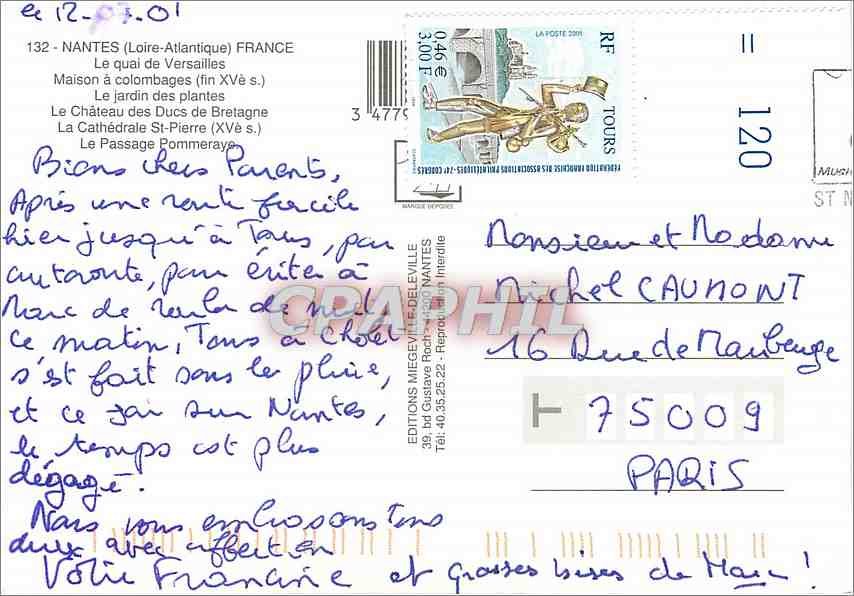 le 12-07.01
132 - NANTES (Loire-Atlantique) FRANCE
Le quai de Versailles
Maison à colombages (fin XVè s.)
Le jardin des plantes
Le Château des Ducs de Bretagne
La Cathédrale St-Pierre (XVè s.)
Le Passage Pommeraye
Biens chers Parents,
Après une route facile
hier jusqu'à Tours, par
autoroute, pour éviter à
Marc de rouler de nuit,
ce matin, Tours à Cholet
s'est fait sous la pluie,
et ce soir sur Nantes,
le temps est plus
dégagé.
Nous vous embrassons tous
deux avec affection
Votre Francine et grosses bises de Marc !
3 4779
MARQUE DEPOSEE
EDITIONS MIEGEVILLE-DELEVILLE
39, bd Gustave Roch - 44200 NANTES
Tél: 40.35.25.22 - Reproduction Interdite
CPAPHIL
LA POSTE 2001
RF
0,46 €
3,00 F
TOURS
FÉDÉRATION FRANÇAISE DES ASSOCIATIONS PHILATÉLIQUES - 74e CONGRÈS
= 120
ST N
Monsieur et Madame
Michel CAUMONT
16 Rue de Maubeuge
75009
PARIS